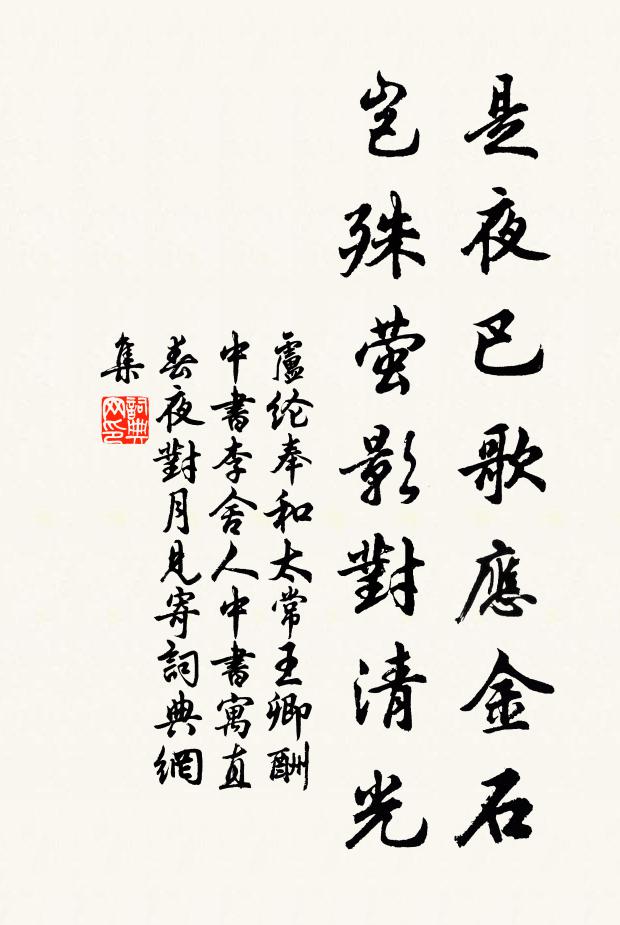 是夜巳歌應金石
豈殊萤影對清光
盧纶奉和太常王卿酬
中書李舍人中書寓直
春夜對月見寄詞典網
集
詞典
网印